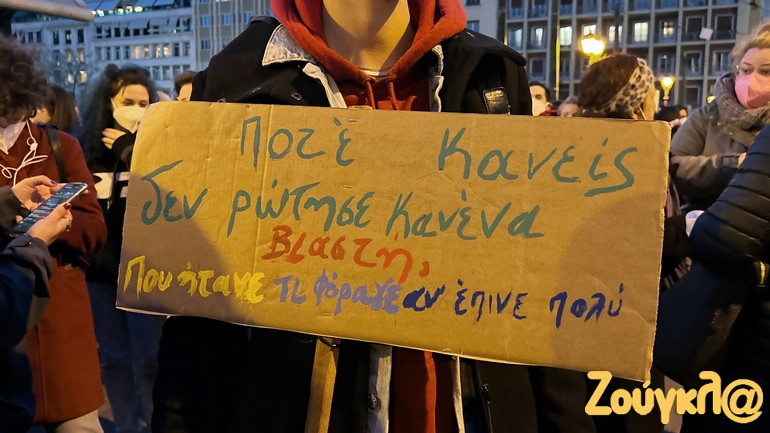 Ποτέ κανείς
δεν ρώτησε κανένα
Βιαστη,
Που ήτανε τι φόραγε αν έπινε πολύ
Ζούγκλ@